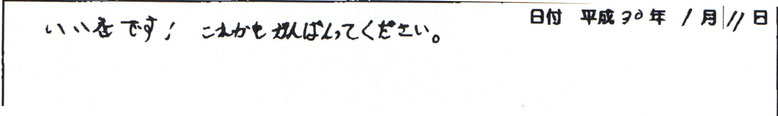 日付 平成30年1月11日
いい店です! これからもがんばってください。